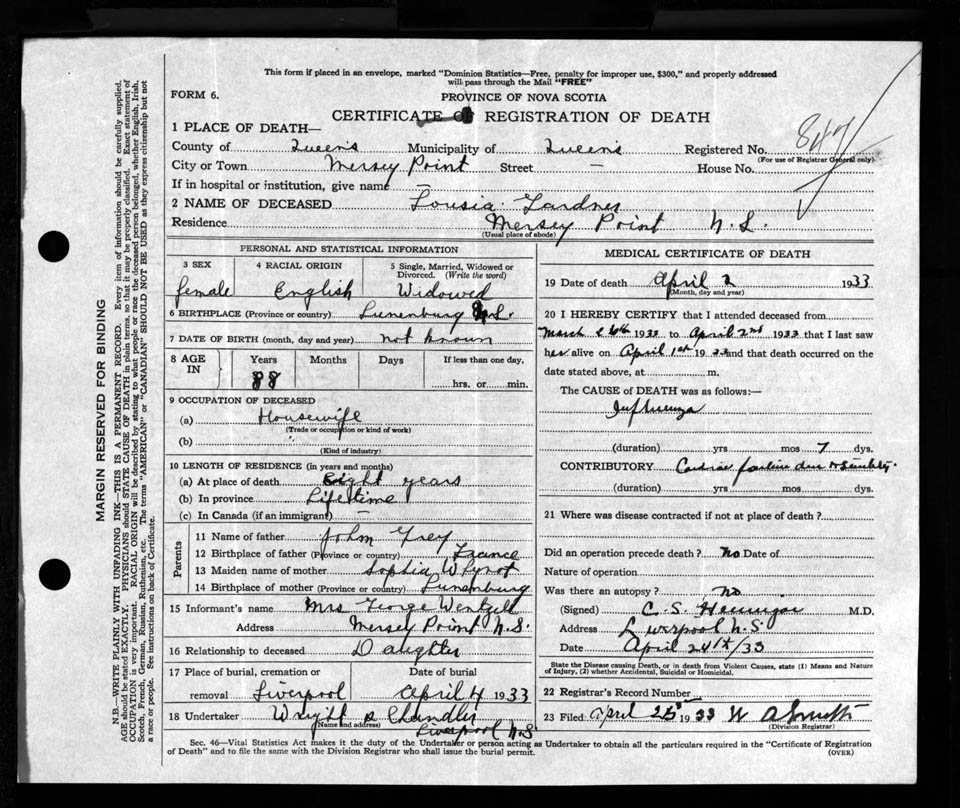 This form if placed in an envelope, marked "Dominion Statistics—Free, penalty for improper use, $300," and properly addressed
will pass through the Mail "FREE"
FORM 6.
PROVINCE OF NOVA SCOTIA
CERTIFICATE OF REGISTRATION OF DEATH
1 PLACE OF DEATH—
County of Queens Municipality of Queens Registered No. 847
(For use of Registrar General only)
City or Town Mersey Point Street — House No.
If in hospital or institution, give name —
2 NAME OF DECEASED Lousia Gardner
Residence Mersey Point N.S.
(Usual place of abode)
PERSONAL AND STATISTICAL INFORMATION
3 SEX 4 RACIAL ORIGIN 5 Single, Married, Widowed or
Divorced. (Write the word)
female English Widowed
6 BIRTHPLACE (Province or country) Lunenburg N.S.
7 DATE OF BIRTH (month, day and year) not known
8 AGE IN Years Months Days If less than one day,
88 hrs. or min.
9 OCCUPATION OF DECEASED
(a) Housewife
(Trade or occupation or kind of work)
(b)
(Kind of industry)
10 LENGTH OF RESIDENCE (in years and months)
(a) At place of death Eight years
(b) In province Lifetime
(c) In Canada (if an immigrant) —
Parents
11 Name of father John Frey
12 Birthplace of father (Province or country) France
13 Maiden name of mother Sophia Whynot
14 Birthplace of mother (Province or country) Lunenburg
15 Informant's name Mrs George Wentzell
Address Mersey Point N.S.
16 Relationship to deceased Daughter
17 Place of burial, cremation or Date of burial
removal Liverpool April 4 1933
18 Undertaker Wright & Chandler
(Name and address)
Liverpool N.S.
MEDICAL CERTIFICATE OF DEATH
19 Date of death April 2 1933
(Month, day and year)
20 I HEREBY CERTIFY that I attended deceased from
March 26th 1933 to April 2nd 1933 that I last saw
her alive on April 1st 1933 and that death occurred on the
date stated above, at m.
The CAUSE of DEATH was as follows:
Influenza
(duration) yrs mos 7 dys.
CONTRIBUTORY Cardiac failure due to Senility.
(duration) yrs mos dys.
21 Where was disease contracted if not at place of death?
Did an operation precede death? No Date of
Nature of operation
Was there an autopsy? No
(Signed) C. S. M.D.
Address Liverpool N.S.
Date April 24th/33
State the Disease causing Death, or in death from Violent Causes, state (1) Means and Nature
of Injury, (2) whether Accidental, Suicidal or Homicidal.
22 Registrar's Record Number
23 Filed April 25 1933 W A Smith
(Division Registrar)
Sec. 46—Vital Statistics Act makes it the duty of the Undertaker or person acting as Undertaker to obtain all the particulars required in the "Certificate of Registration
of Death" and to file the same with the Division Registrar who shall issue the burial permit.
(OVER)
MARGIN RESERVED FOR BINDING
N.B.—WRITE PLAINLY WITH UNFADING INK—THIS IS A PERMANENT RECORD. Every item of information should be carefully supplied.
AGE should be stated EXACTLY. PHYSICIANS should STATE CAUSE OF DEATH in plain terms, so that it may be properly classified. Exact statement of
OCCUPATION is very important. RACIAL ORIGIN will be described by stating to what people or race the deceased person belonged, whether English, Irish,
Scotch, French, German, Russian, Ruthenian, etc. The terms "AMERICAN" or "CANADIAN" SHOULD NOT BE USED as they express citizenship but not
a race or people. See instructions on back of Certificate.